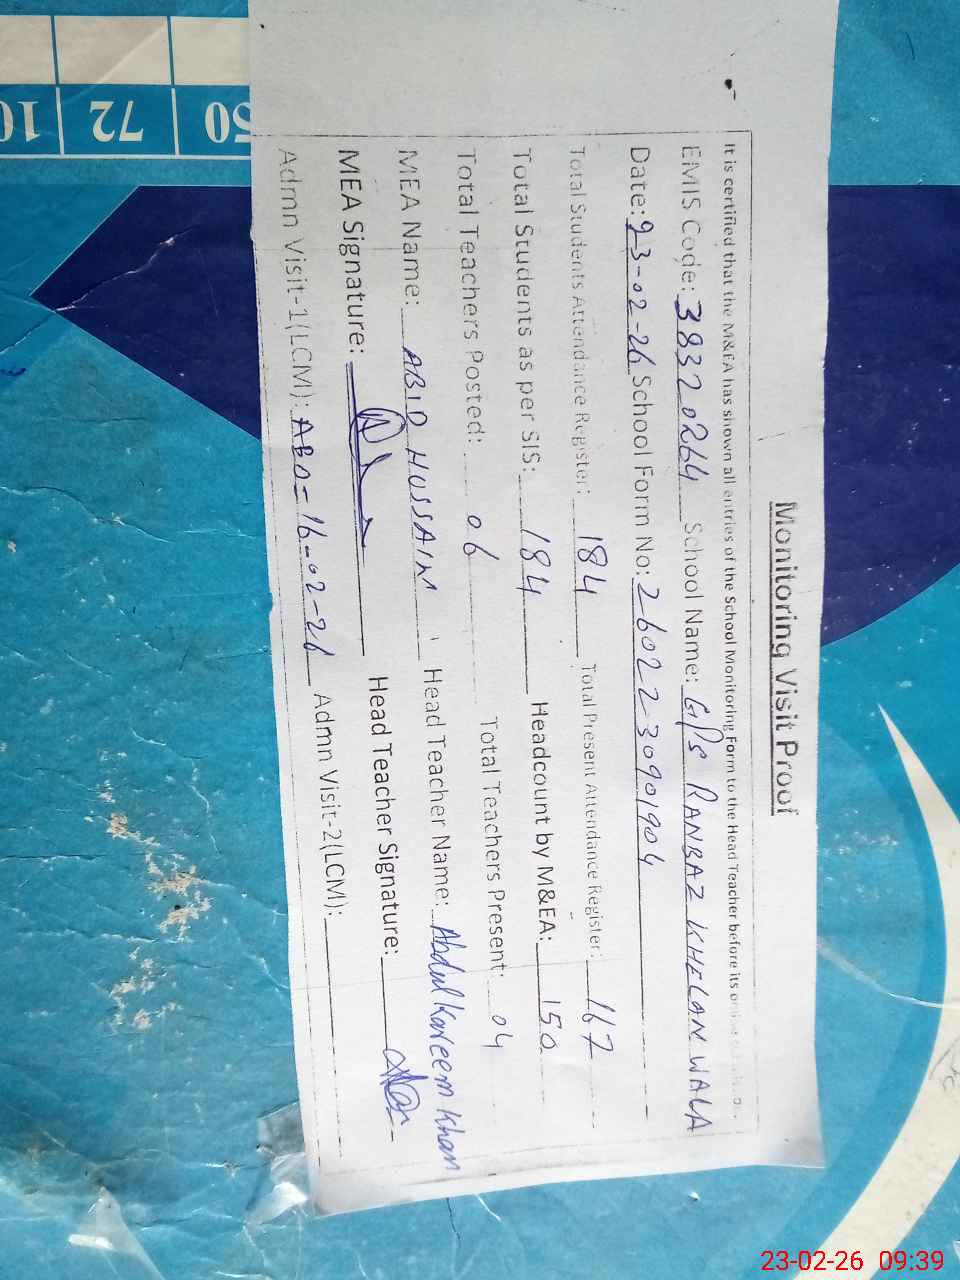 Monitoring Visit Proof
It is certified that the M&EA has shown all entries of the School Monitoring Form to the Head Teacher before its
EMIS Code: 38320264 School Name: G/P/S RANBAZ KHELAN WALA
Date: 23-02-26 School Form No: 2602230901904
Total Students Attendance Register: 184 Total Present Attendance Register: 167
Total Students as per SIS: 184 Headcount by M&EA: 150
Total Teachers Posted: 06 Total Teachers Present: 04
MEA Name: ABID HUSSAIN Head Teacher Name: Abdul Kareem Khan
MEA Signature: Head Teacher Signature:
Admn Visit-1(LCM): 16-02-26 Admn Visit-2(LCM):
50 72 10
23-02-26 09:39